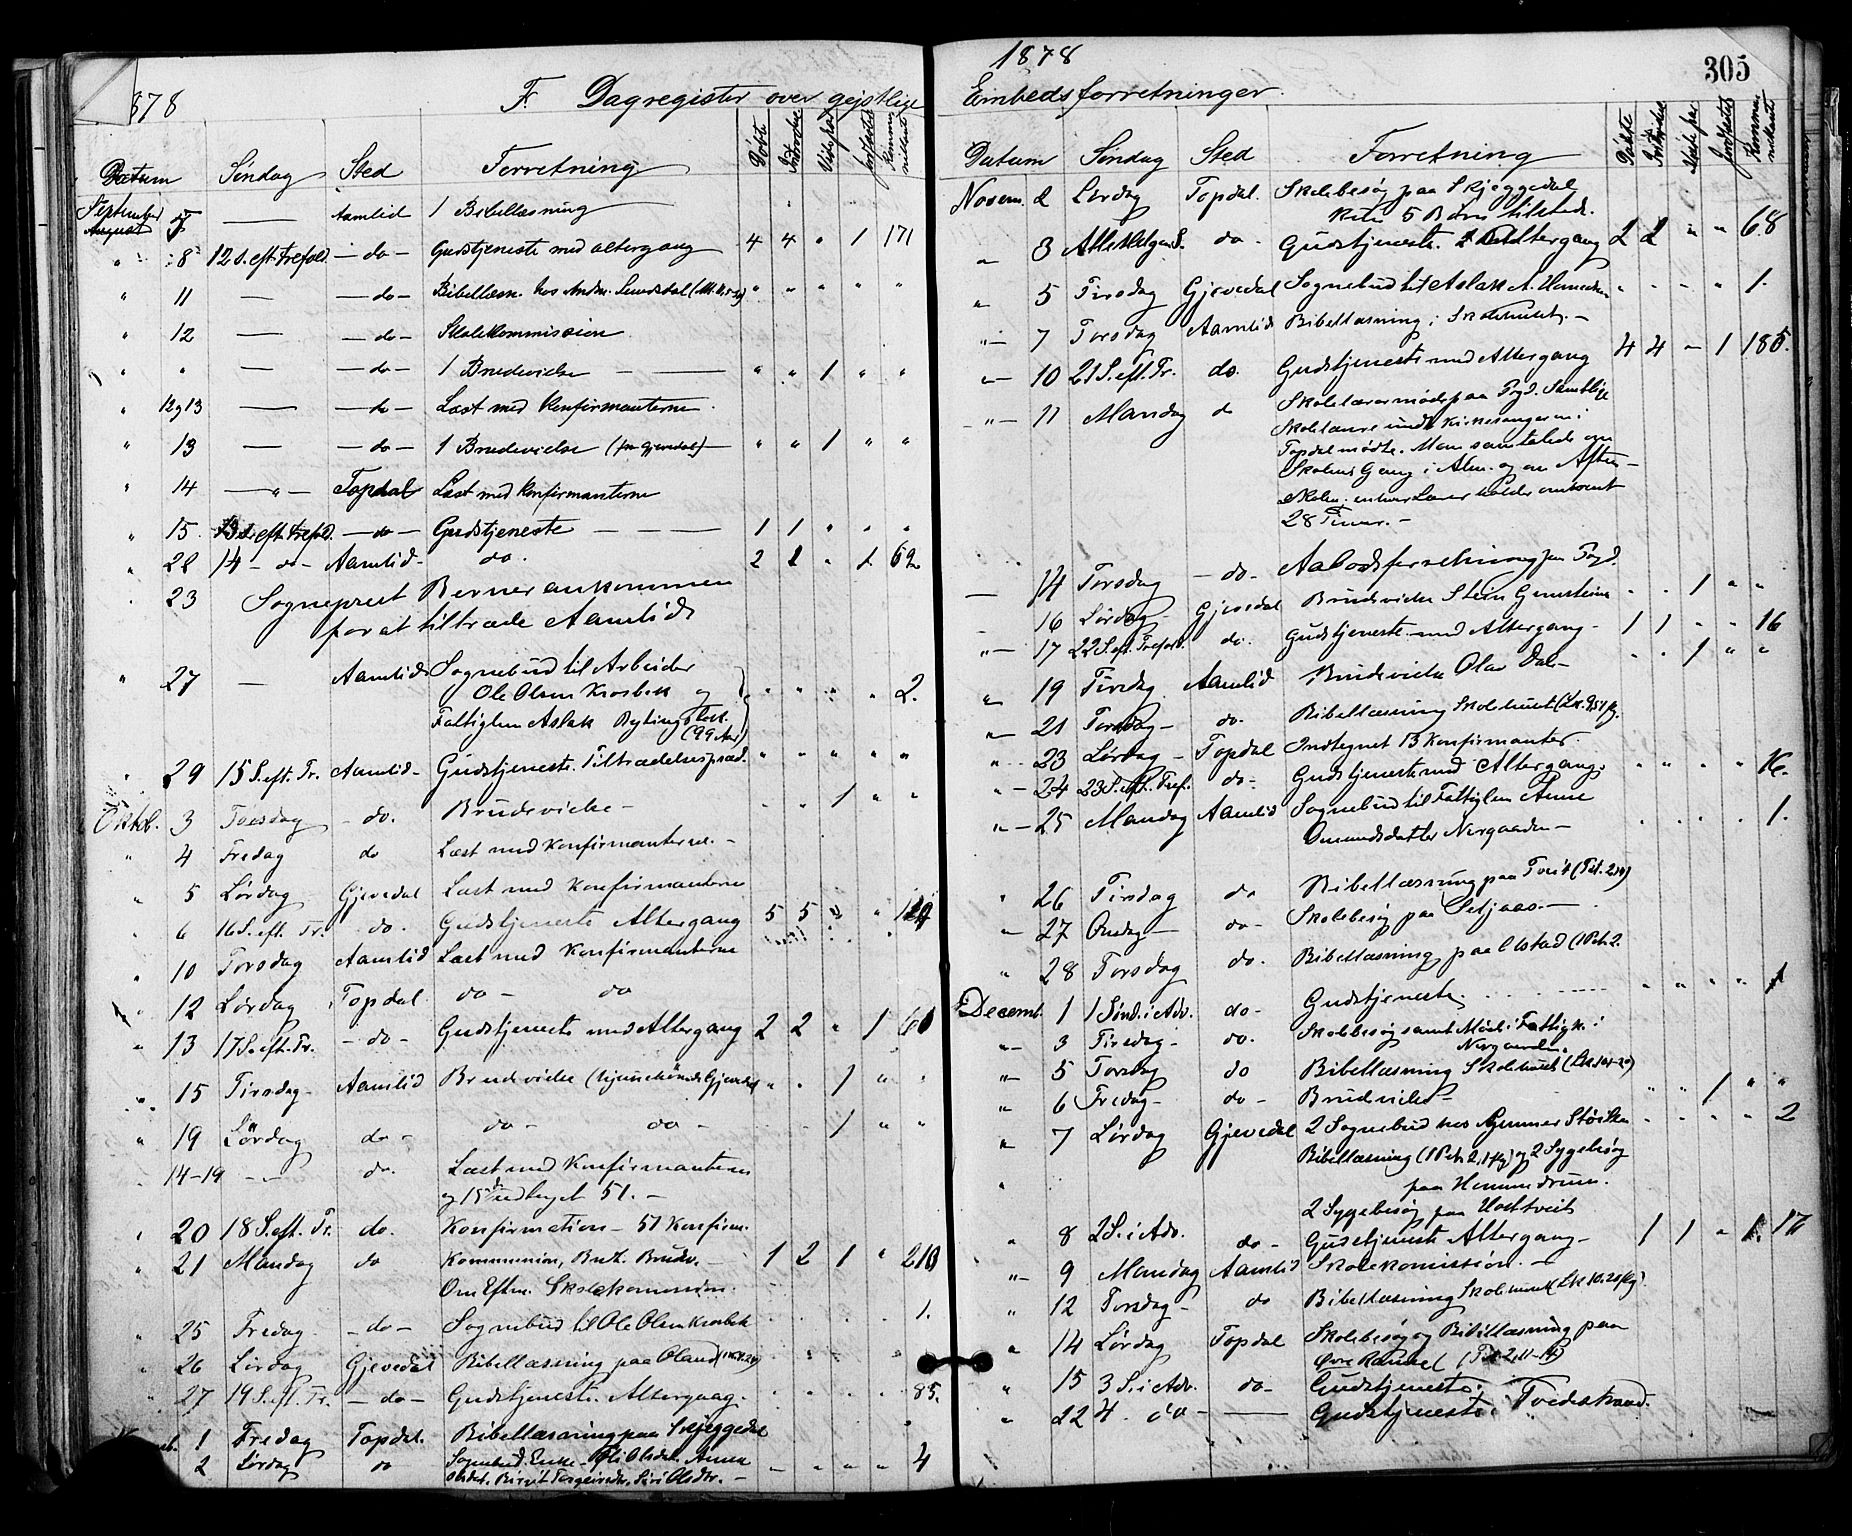 878
F. Dagregister over gejstlige
Datum Søndag Sted Forretning Døbte Introdue Viste par Jordfæstet Kommunikant
September August 7 — Aamlid 1 Bibellæsning
" 8 12 S. eft. Trefold. — do — Gudstjeneste med altergang 4 4 " 1 171
" 11 — — do — Bibellæsn. hos Andr. " " " " "
" 12 — — do — Skolekommission
" " — — do — 1 Brudevielse — " " 1 " "
" 12 g 13 — — do — Læst med Konfirmanterne.
" 13 — — do — 1 Brudevielse (fra Gjevedal) " " 1 " "
" 14 — " — Topdal Læst med Konfirmanterne
" 15 13 S. eft. Trefold. — do — Gudstjeneste — 1 1 " " "
" 22 14 — do — Aamlid — do. 2 1 " 1 62
" 23 Sogneprest Berner ankommen
for at tiltræde Aamlid
" 27 — Aamlid Sognebud til Arbeider
Ole Olsen Krosbek og " " " " 2.
Fattiglem Aslak
(99 Aar)
" 29 15 S. eft. Tr. Aamlid — Gudstjeneste. Tiltrædelsespræd. " " " " "
Oktob. 3 Torsdag — do. Brudevielse — " " 1 " "
" 4 Fredag do Læst med Konfirmanterne. —
" 5 Lørdag Gjevedal Læst med Konfirmanterne
" 6 16 S. eft. Tr. do. Gudstjeneste Altergang 5 5 " "
" 10 Torsdag Aamlid Læst med Konfirmanterne
" 12 Lørdag Topdal do — do
" 13 17 S. eft. Tr. — do — Gudstjeneste med Altergang 2 2 " 1 61
" 15 Tirsdag — Aamlid Brudevielse " " 1 " "
" 19 Lördag do — do — do — " " 1 " "
14-19 — do. Læst med Konfirmanterne
og 15de udlagt 51. —
" 20 18 S. eft. Tr. do. Konfirmation — 51 Konfirm.
" 21 Mandag do Kommunion, Brudv. — 1 2 1 " 210
Om Eftm. Skolekommission.
" 25 Fredag — do — Sognebud til Ole Olsen Krosbek 1.
" 26 Lørdag Gjevedal Bibellæsning paa Oland
" 27 19 S. eft. Tr. — do — Gudstjeneste. Altergang. 85.
1 Fredag Topdal. Bibellæsning paa Skjeggedal
2 Lørdag do Sognebud Olsdat. Anne
Olsdat. Birgit Targeirsdr. Siri Olsdtr. — — " " " 4
1878
305
Embedsforretninger.
Datum Søndag Sted Forretning Døbte Jordfæstet Kommunikante
Novem. 2 Lørdag Topdal. Skolebesøg paa Skjeggedal
kun 5 Børn tilstede.
" 3 Alle Helgen S. do. Gudstjeneste. Altergang 2 2 " " 68
" 5 Tirsdag Gjevedal Sognebud til Aslak A. " " " " 1.
" — 7 Torsdag Aamlid Bibellæsning i Skolehuset. —
" — 10 21 S. eft. Tr. do. Gudstjeneste med Altergang 4 4 — 1 185.
" — 11 Mandag do Skolelærermøde paa Prgd. Samtlige
Skolelærere undt. Kirkesangeren i
Topdal mødte. Man samtalede om
Skolens Gang i Alm. og om Aften-
skolen. enhver Lærer holder omtrent
28 Timer. —
— 14 Torsdag — do — Aabodsforretning paa Prgd.
— 16 Lørdag — Gjevedal Brudevielse Stein " " 1 " "
" — 17 22 S. eft. Trefold. do. Gudstjeneste med Altergang — 1 1 " " 16
" 19 Tirsdag Aamlid Brudevielse Olav Dal — " " 1 " "
" 21 Torsdag — do. Bibellæsning Skolehuset (Lk. 9, 51 fg.
" — 23 Lørdag — Topdal Indtegnet 13 Konfirmanter.
" — 24 23 S. eft. Tref. do — Gudstjeneste med Altergang. " " " " 16.
" — 25 Mandag Aamlid Sognebud til Fattiglem Anne
Omundsdatter Nergaarden — 1.
" 26 Tirsdag do Bibellæsning paa Tveit (Tit. 2, 14)
" — 27 Onsdag — do — Skolebesøg paa Seljaas —
" 28 Torsdag do. Bibellæsning paa Ulstad (1 Pet. 2.
Decemb. 1 1 Sønd. i Adv. do — Gudstjeneste. " " " " 1
" — 3 Tirsdag — do. Skolebesøg samt Møde i Fattigk. i
Nergaarden.
" — 5 Torsdag do Bibellæsning Skolehuset
" 6 Fredag — do — Brudevielse — " " 1 " "
" 7 Lørdag Gjevedal 2 Sognebud hos Gunner — " " " 2
" Bibellæsning (1 Petr. 2, 1 fg) og 2 Sygebesøg
paa
2 Sygebesøg paa
" 8 2 S. i Adv. do — Gudstjeneste Altergang — 1 1 " 1. 17
" — 9 Mandag Aamlid Skolekomission. —
" 12 Torsdag — do Bibellæsning Skolehuset (Lk 10, 25 fg).
" 14 Lørdag Topdal Skolebesøg og Bibellæsning paa
Øvre Ramsel (Tit. 2, 11-14)
" 15 3 S. i Adv. do — Gudstjeneste.
" 22 4. do — — Gudstjeneste i Tvedestrand.